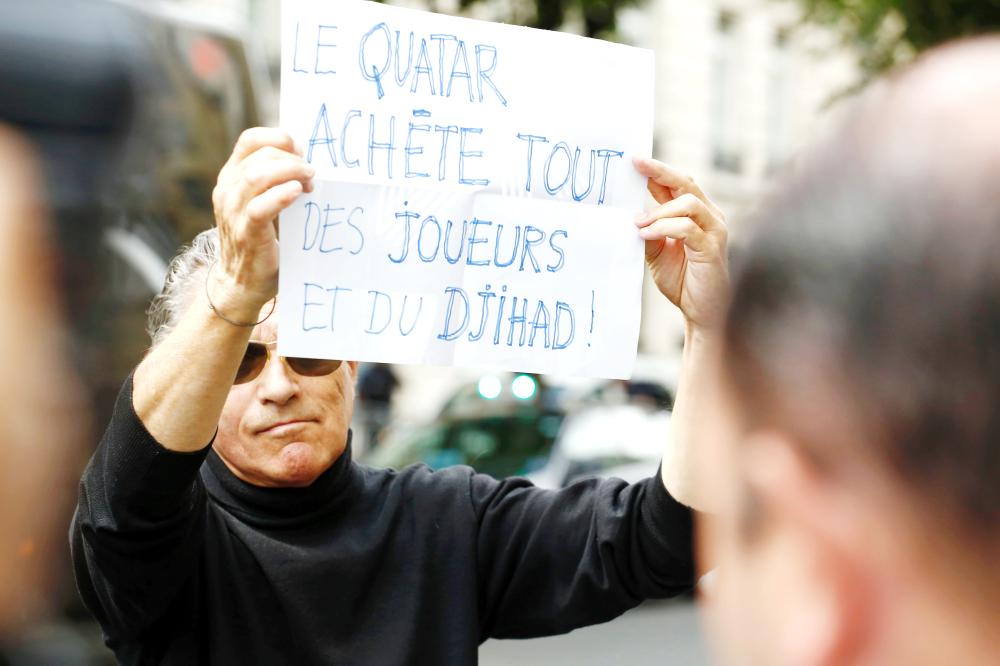 LE QUATAR
ACHÈTE TOUT
DES JOUEURS
ET DU DJIHAD !